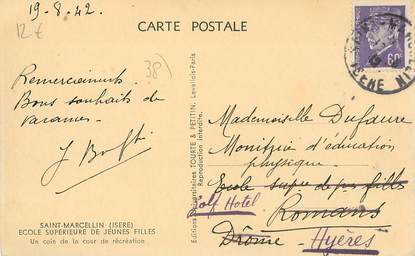 19-8-42
12€
CARTE POSTALE
38)
60
ISERE
Remerciements
Bons souhaits de
vacances
Editions Universitaires TOURTE & PETITIN, Levallois-Paris
Reproduction Interdite.
Mademoiselle Dufaure
Monitrice d'éducation
physique
Ecole supre de jes filles
Golf Hotel
Romans
Drôme Hyères
SAINT-MARCELLIN (ISERE)
ECOLE SUPERIEURE DE JEUNES FILLES
Un coin de la cour de récréation